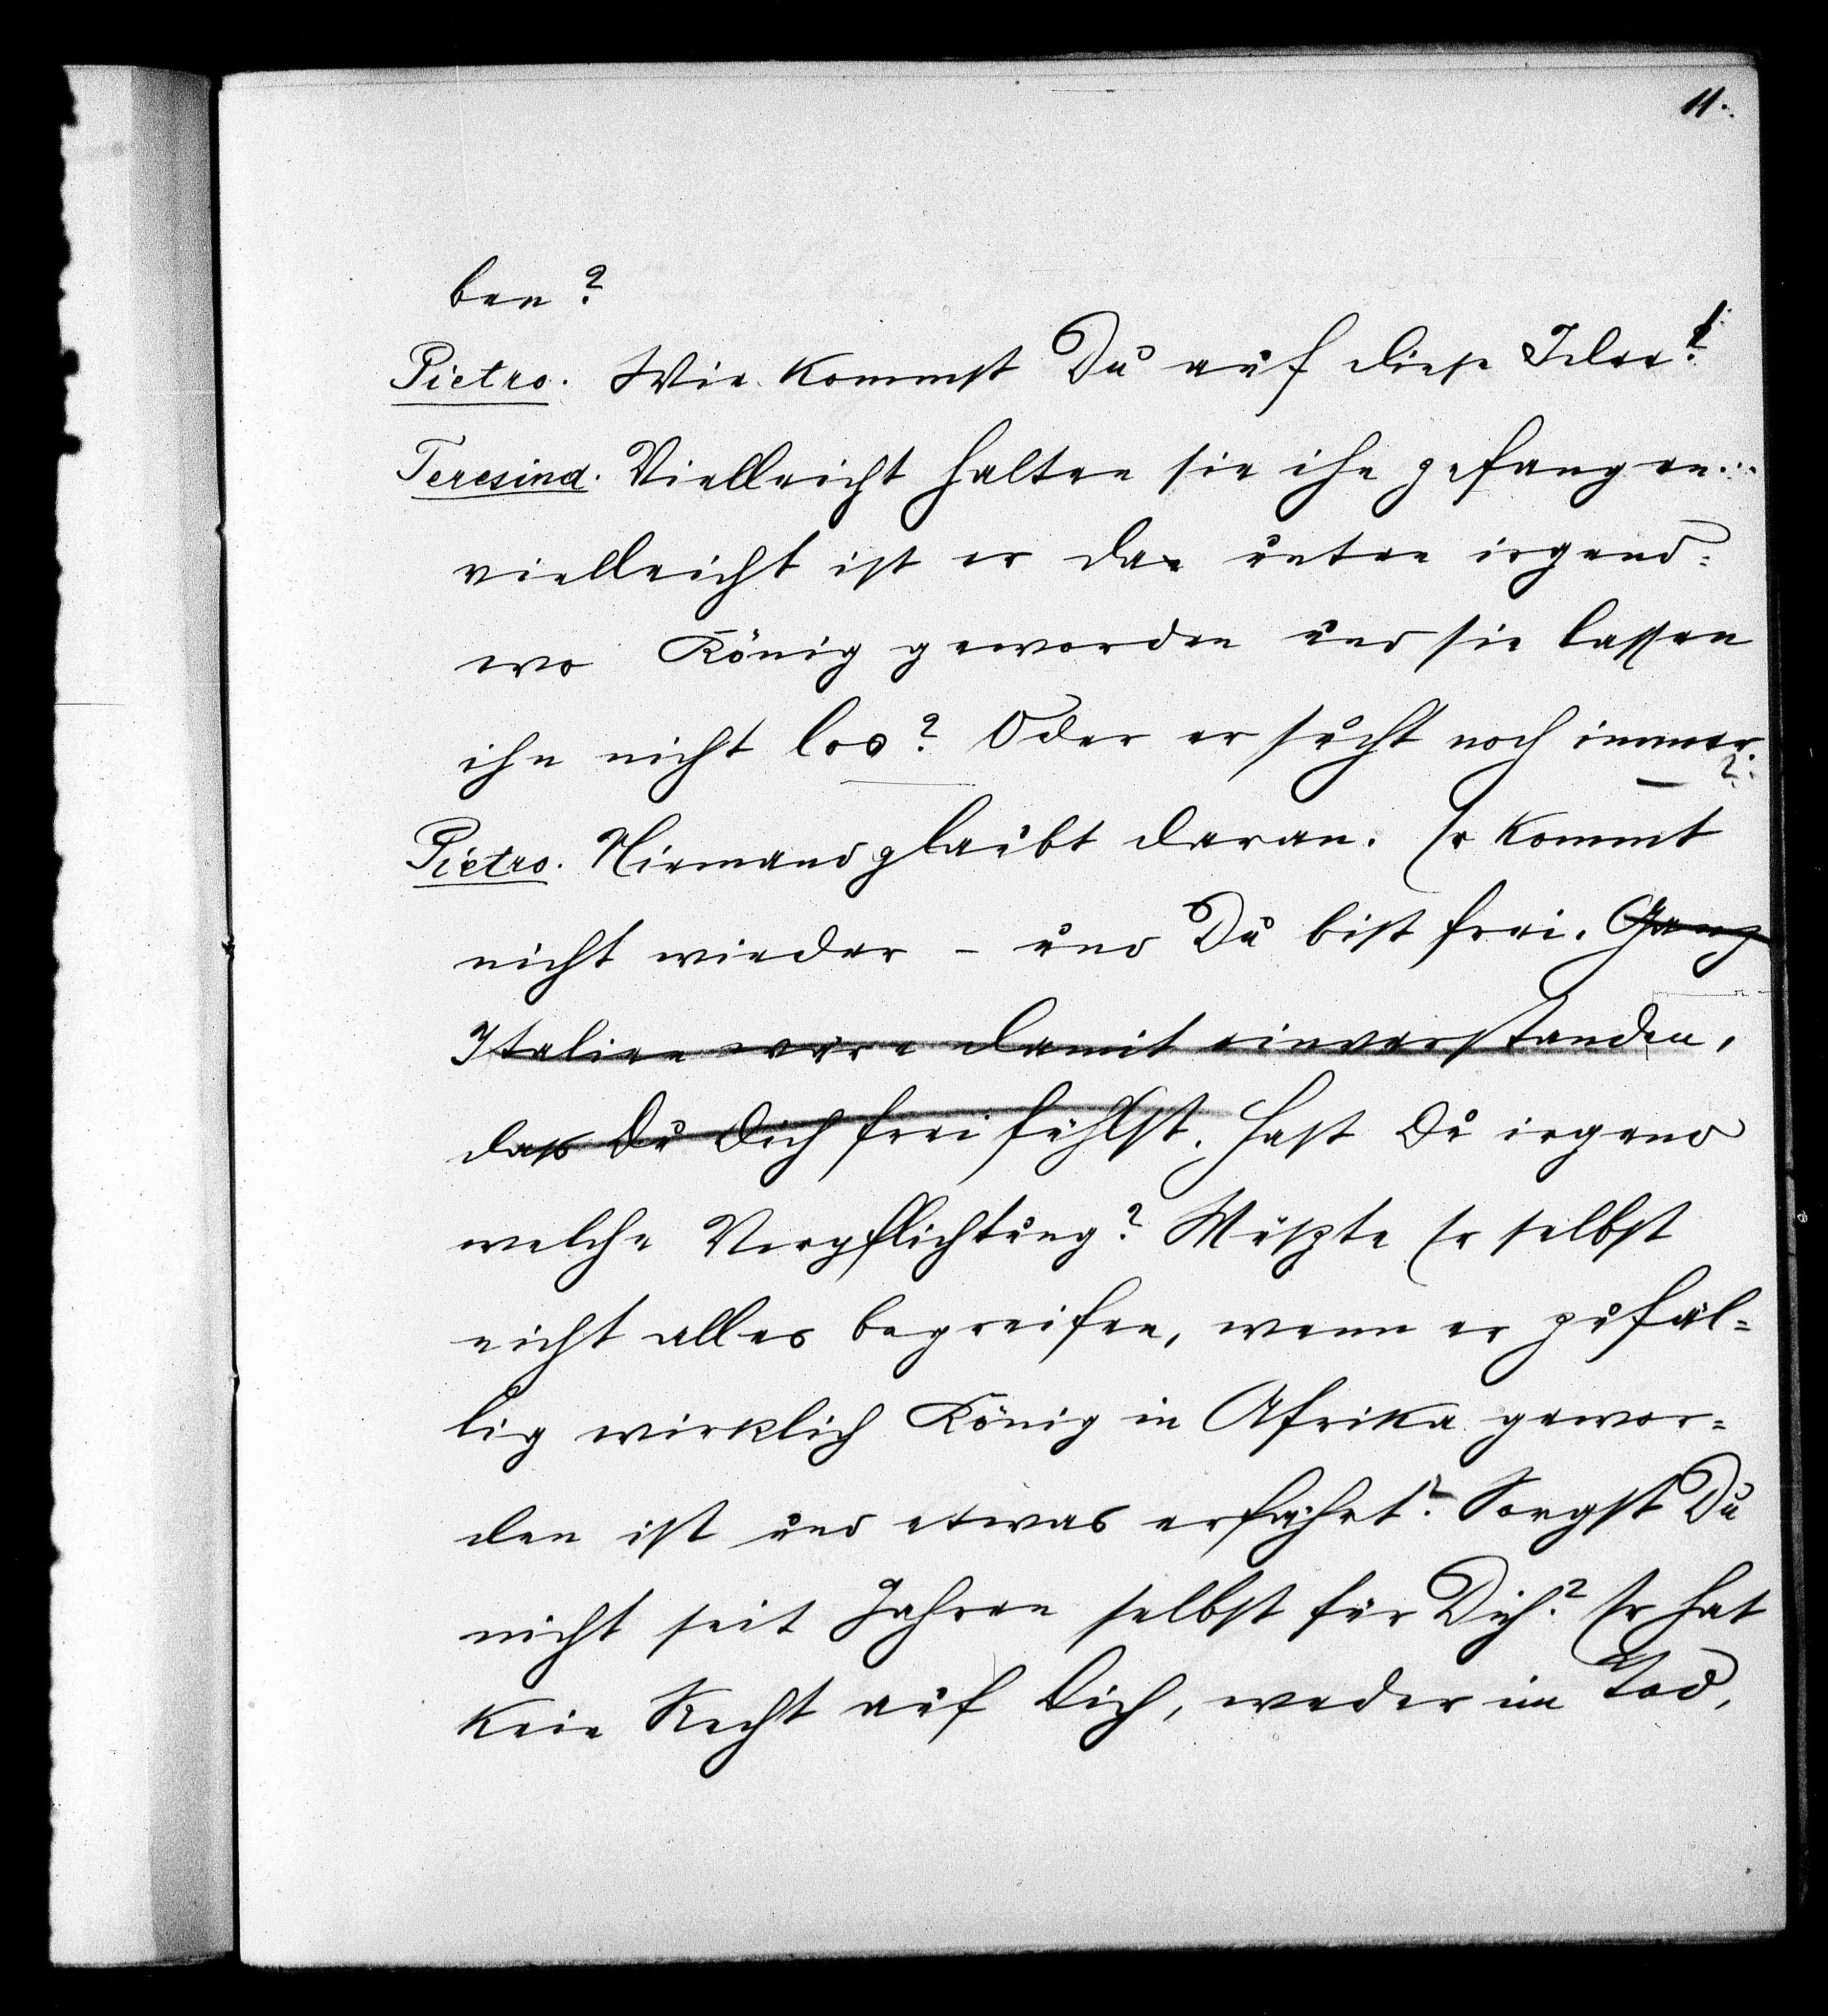 11.
ben?
Pietro. Wie kommst Du auf diese Idee?
Teresina. Vielleicht halten sie ihn gefangen...
vielleicht ist er da unten irgend=
wo König geworden und sie lassen
ihn nicht los? Oder er sucht noch immer?
Pietro. Niemand glaubt daran. Er kommt
nicht wieder – und Du bist frei. Ganz
Italien wäre damit einverstanden,
dass Du Dich frei fühlst. Hast Du irgend
welche Verpflichtung? Müßte Er selbst
nicht alles begreifen, wenn er zufäl=
lig wirklich König in Afrika gewor=
den ist und etwas erfährt? Sorgst Du
nicht seit Jahren selbst für Dich? Er hat
kein Recht auf Dich, weder im Tod,